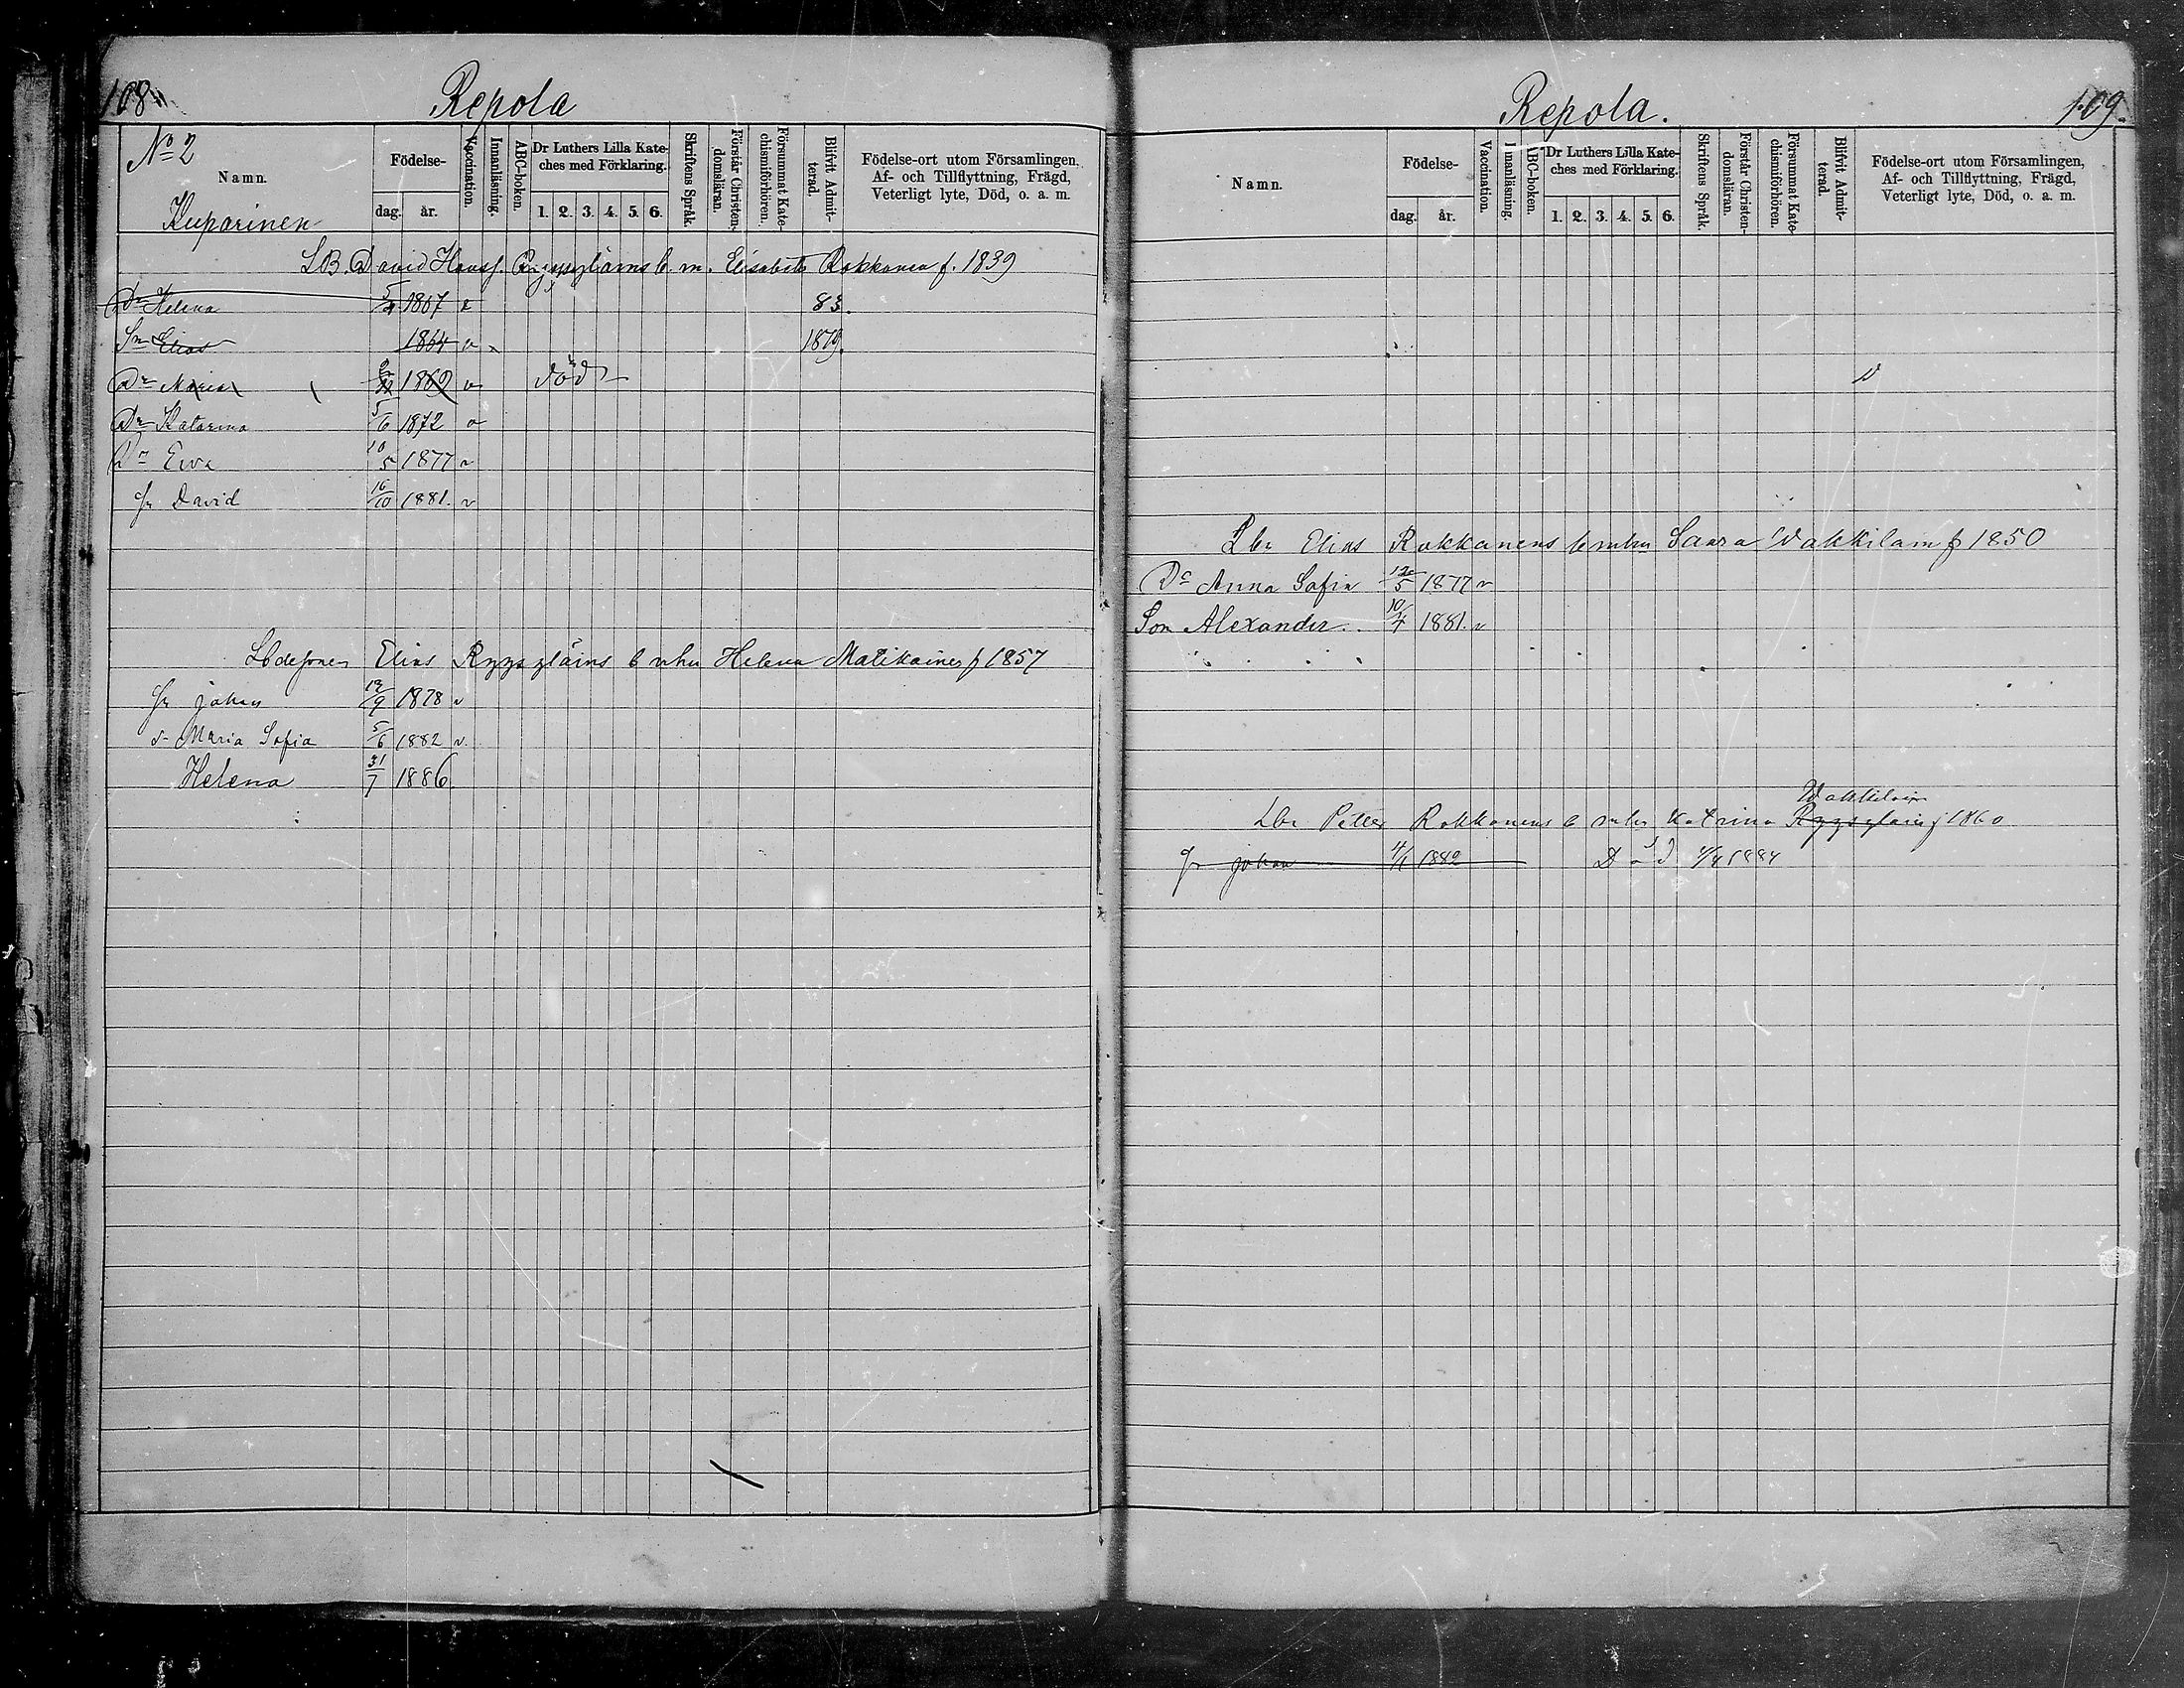 108
Repola
No 2
Namn.
Kuparinen
Födelse-
dag. år.
Vaccination.
Innanläsning.
ABC-boken.
Dr Luthers Lilla Kate-
ches med Förklaring.
1. 2. 3. 4. 5. 6.
Skriftens Språk.
Förstår Christen-
domsläran.
Försummat Kate-
chismiförhören.
Blifvit Admit-
terad.
Födelse-ort utom Församlingen,
Af- och Tillflyttning, Frägd,
Veterligt lyte, Död, o. a. m.
LB. David Hansf. m. Elisabeth Rokkonen f. 1839
Dr Helena 5/4 1867 83.
Sn Elias 1864 v 1879.
Dr Maria 1869 v död
Dr Katarina 5/6 1872 v
Dr Eva 10/5 1877 v
Sn David 16/10 1881. v
Elias Ryysyläins e nhu Helena Matikainen f 1857
Sn Johan 19/9 1878 v
d- Maria Sofia 5/6 1882 v.
Helena 31/7 1886.
Repola.
109.
Namn.
Födelse-
dag. år.
Vaccination.
Innanläsning.
ABC-boken.
Dr Luthers Lilla Kate-
ches med Förklaring.
1. 2. 3. 4. 5. 6.
Skriftens Språk.
Förstår Christen-
domsläran.
Försummat Kate-
chismiförhören.
Blifvit Admit-
terad.
Födelse-ort utom Församlingen,
Af- och Tillflyttning, Frägd,
Veterligt lyte, Död, o. a. m.
Lbr Elias Rokkanens Saara Wakkilain f 1850
Dr Anna Sofia 12/5 1877 v
Son Alexander. 10/4 1881. v
Wakkilain
Lbr Petter Rokkanens e nhu Katrina Ryysyläin f 1860
Sn Johan 4/1 1882 Död 4/4 1884